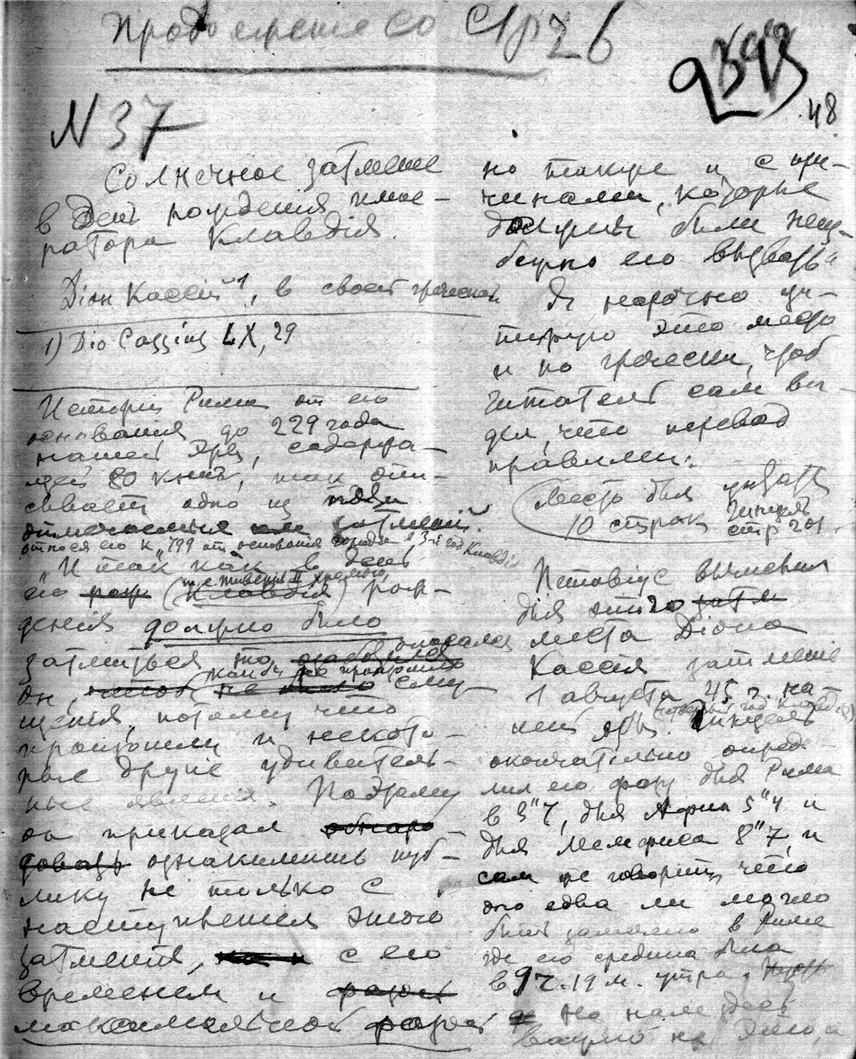 Продолжение со стр 26
2393
48
N 37
Солнечное затмение
в день рождения импе-
ратора Клавдія.
Діон Кассій 1, в своей греческой
1) Dio Cassius LX, 29
Истории Рима от его
основания до 229 года
нашей эры, содержа-
щей 80 книг, так опи-
сывает одно из
затмений.
относя его к 799 от основания города в 3-й год Клавдія
„И так как в день
его (Клавдія) рож-
денія должно было
затмиться то опасался
он, как бы не произошло
щенія, потому что
произошли и некото-
рые другие удивитель-
ные явления. Поэтому
он приказал обнаро
довать ознакомить пуб-
лику не только с
наступлением этого
затменія, с его
временем и фазой
максимальной фазой
но также и с при-
чинами, которые
должны были неиз-
бежно его вызвать“
Я нарочно ци-
тирую это место
и по гречески, чтоб
читатель сам ви-
дел, что перевод
правилен:
Место для
10 строк Гинцель
стр 201
Петавіус вычислил
для этого затм
места Діона
Кассія затмение
1 августа 45 г. на
шей эры. Гинцель
окончательно опреде-
лил его фазу для Рима
в 3"7, для Афин 5"4 и
для Мемфиса 8"7, и
сам же говорит, что
оно едва ли могло
быть замечено в Риме
где его средина была
в 9 ч. 19 м. утра.
Но нам здесь
важно не это, а